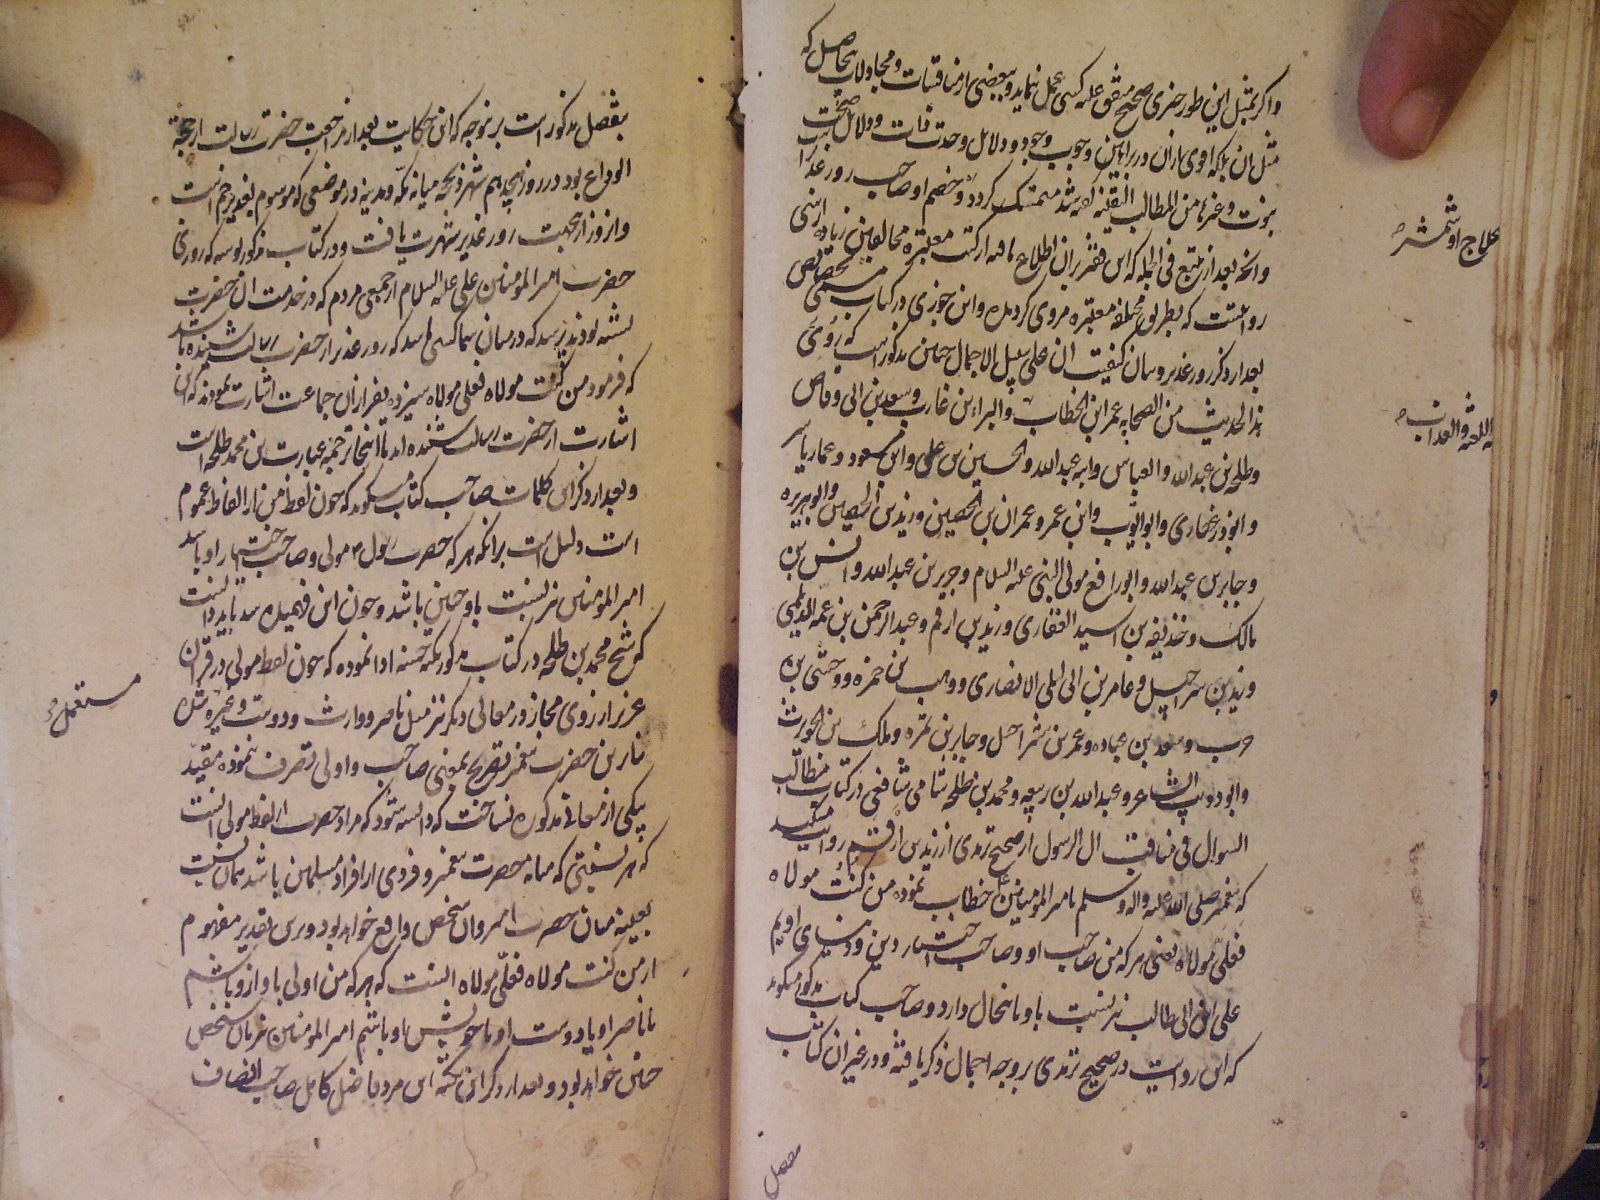 واکر بمثل این طور خبری صحیح متفق علیه کسی عمل نماید و ببعضی از مناقشات و مجادلات بیحاصل که
مثل ان بلکه اقوی از ان در براهین وجوب وجود و دلایل وحدت ذات و دلایل صحت
نبوت و غیرها من المطالب الیقینیه گفته شد متمسک کردد و خصم او صاحب روز غدیر
وانچه بعد از تتبع فی الجمله که این فقیر بران اطلاع یافته از کتب معتبره مخالفین زیاده از سی
روایتست که بطریق مختلفه معتبره مروی کردیده وابن جوزی در کتاب خصایص
بعد از ذکر روز غدیر و بیان کیفیت ان علی سبیل الاجمال چنین مذکور است که روی
هذا الحدیث من الصحابه عمر ابن الخطاب والبراء بن عازب وسعد بن ابی وقاص
وطلحه بن عبد الله والعباس وابنه عبد الله والحسین بن علی وابن مسعود وعمار یاسر
وابوذر غفاری وابو ایوب وابن عمر وعمران بن الحصین وزید بن الحصین وابو هریره
وجابر بن عبد الله وابو رافع مولی النبی علیه السلام وجریر بن عبد الله وانس بن
مالک وحذیفه بن اسید الغفاری وزید بن ارقم وعبد الرحمن بن یعمر الدیلمی
وزید بن شراحیل وعامر بن ابی لیلی الانصاری ووهب بن حمزه ووحشی بن
حرب وسعد بن عباده وعمر بن شراحیل وجابر بن سمره ومالک بن الحویرث
وابو ذویب الشاعر وعبد الله بن ربیعه ومحمد بن طلحه شامی شافعی در کتاب مطالب
السوال فی مناقب ال الرسول از صحیح ترمذی از زید بن ارقم روایت میکند
که پیغمبر صلی الله علیه واله وسلم بامیر المومنین علی خطاب نموده من کنت مولاه
فعلی مولاه یعنی هر که من صاحب او وصاحب اختیار دین و دنیای اویم
علی ابن ابی طالب نیز نسبت باو اینحال دارد وصاحب کتاب مذکور میکوید
که این روایت در صحیح ترمذی بر وجه اجمال ذکر یافته و در غیر ان کتاب
علاج او شمشیر
به اللعنه والعذاب
مفصل
بتفصیل مذکور است برینوجه که این حکایت بعد از مراجعت حضرت رسالت از حجة
الوداع بود در روز هیجدهم شهر ذیحجه میانه مکه و مدینه در موضعی که موسوم بغدیر خم است
وانروز ازینجهت روز غدیر شهرت یافت و در کتاب مذکور نوشته که روزی
حضرت امیر المومنین علی علیه السلام از جمعی مردم که در خدمت ان حضرت
نشسته بودند پرسید که در میان شما کسی باشد که روز غدیر از حضرت رسالت شنیده باشد
که فرمود من کنت مولاه فعلی مولاه سیزده نفر ازان جماعت اشارت نمودند که این
اشارت از حضرت رسالت شنیده اند تا اینجا ترجمه عبارت بن محمد طلحه است
وبعد از ذکر این کلمات صاحب کتاب میکوید که چون لفظ من از الفاظ عموم
است دلیل است برانکه هر که حضرت رسول مولی وصاحب اختیار او باشد
امیر المومنین نیز نسبت باو چنین باشد وچون این فهمیده شد باید دانست
که شیخ محمد بن طلحه در کتاب مذکور نکته حسنه ادا نموده که چون لفظ مولی در قران
عزیز از روی مجاز در معانی دیکر نیز مثل ناصر و وارث و دوست و غیره شده
بنابرین حضرت پیغمبر تصریح بمعنی صاحب و اولی بتصرف ننموده مقید
بیکی از معانی مذکوره نساخت که دانسته شود که مراد حضرت از لفظ مولی انست
که هر نسبتی که میانه حضرت پیغمبر و فردی از افراد مسلمین باشد همان نسبت
بعینه میان حضرت امیر و ان شخص واقع خواهد بود و برین تقدیر مفهوم
از من کنت مولاه فعلی مولاه انست که هر که من اولی باو از و باشم
یا ناصر او یا دوست او یا خویش او باشم امیر المومنین نیز بان شخص
چنین خواهد بود و بعد از ذکر این نکته این مرد فاضل کامل صاحب انصاف
مستعمل